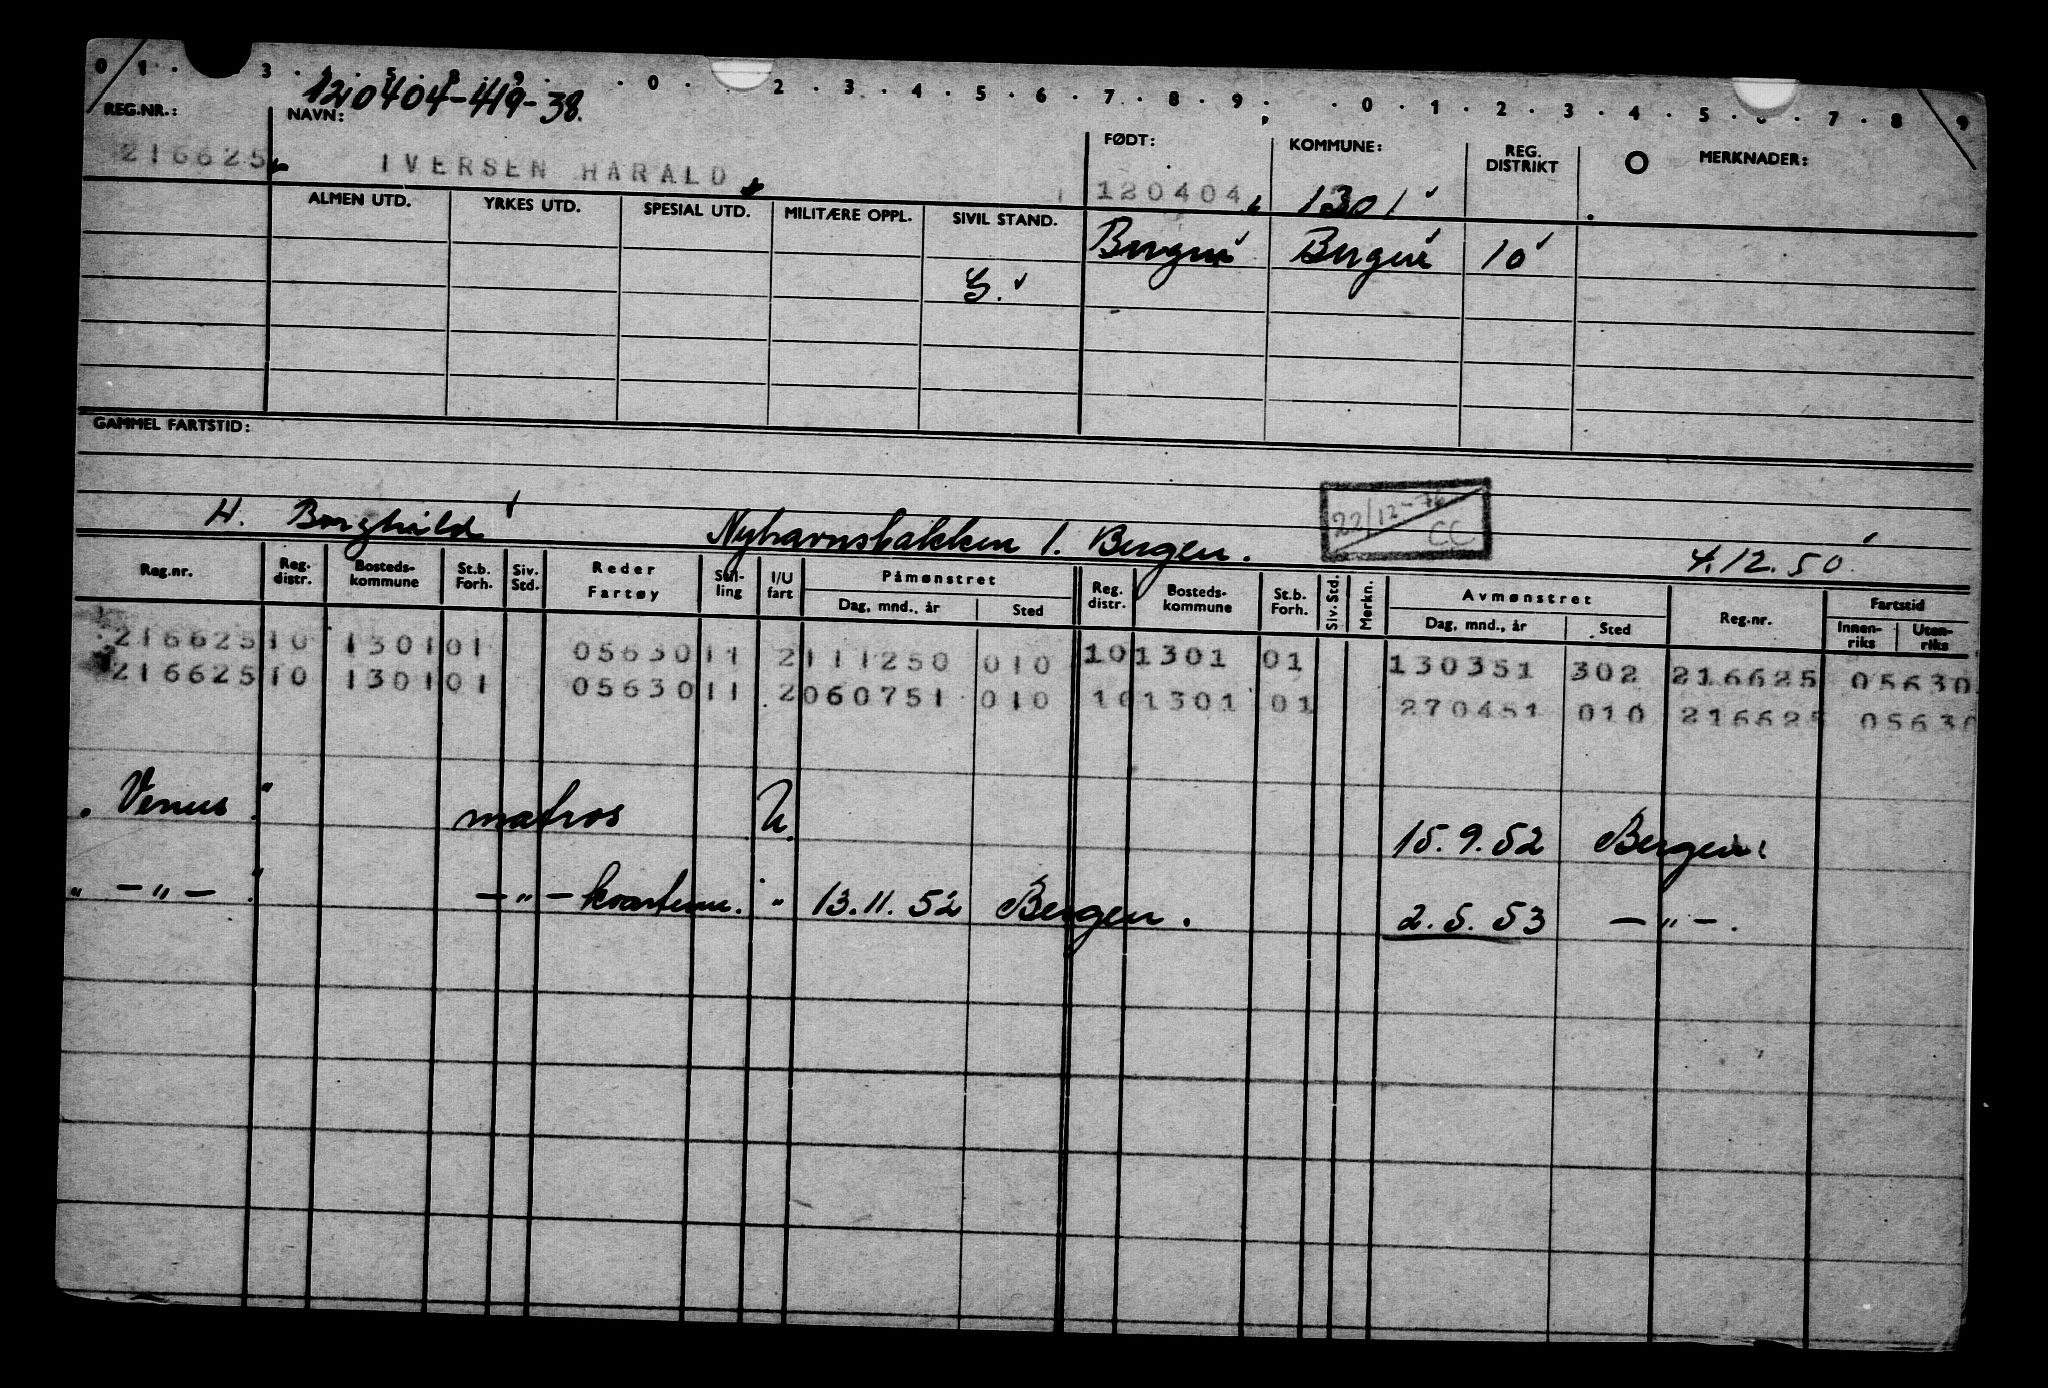 0 1 · 3 · 5 · 8 · 9 · · 0 · 2 · 3 · 4 · 5 · 6 · 7 · 8 · 9 · · 0 · 1 · 2 · 3 · 4 5 · 6 · 7 · 8 9
120404-419-38.
REG.NR.: NAVN: FØDT: KOMMUNE: REG. DISTRIKT O MERKNADER:
216625 IVERSEN HARALD 120404 1301
ALMEN UTD. YRKES UTD. SPESIAL UTD. MILITÆRE OPPL. SIVIL STAND.
Bergen Bergen 10
G.
GAMMEL FARTSTID:
22/12-76 CC
H. Borghild Nyhavnsbakken 1. Bergen. 4.12.50.
Reg.nr. Reg. distr. Bosteds-kommune St.b. Forh. Siv. Std. Reder Fartøy Stil-ling I/U fart Påmønstret Reg. distr. Bosteds-kommune St.b. Forh. Siv. Std. Merkn. Avmønstret Reg.nr. Fartstid
Dag, mnd., år Sted Dag, mnd., år Sted Innen-riks Uten-riks
216625 10 1301 01 05630 11 2 111250 010 10 1301 01 130351 302 216625 05630
216625 10 1301 01 05630 11 2 060751 010 10 1301 01 270451 010 216625 05630
"Venus" matros U. 15.9.52 Bergen.
" — " — " — " — kvarterm. " 13.11.52 Bergen. 2.5.53 — " — .